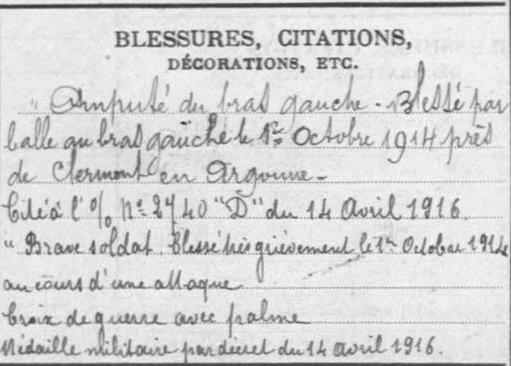 BLESSURES, CITATIONS,
DÉCORATIONS, ETC.
" Amputé du bras gauche - Blessé par
balle au bras gauche le 1er Octobre 1914 près
de Clermont en Argonne -
Cité à l'O/ No 2740 "D" du 14 Avril 1916.
" Brave soldat. Blessé très grièvement le 1er Octobre 1914
au cours d'une attaque
Croix de guerre avec palme
Médaille militaire par décret du 14 avril 1916.